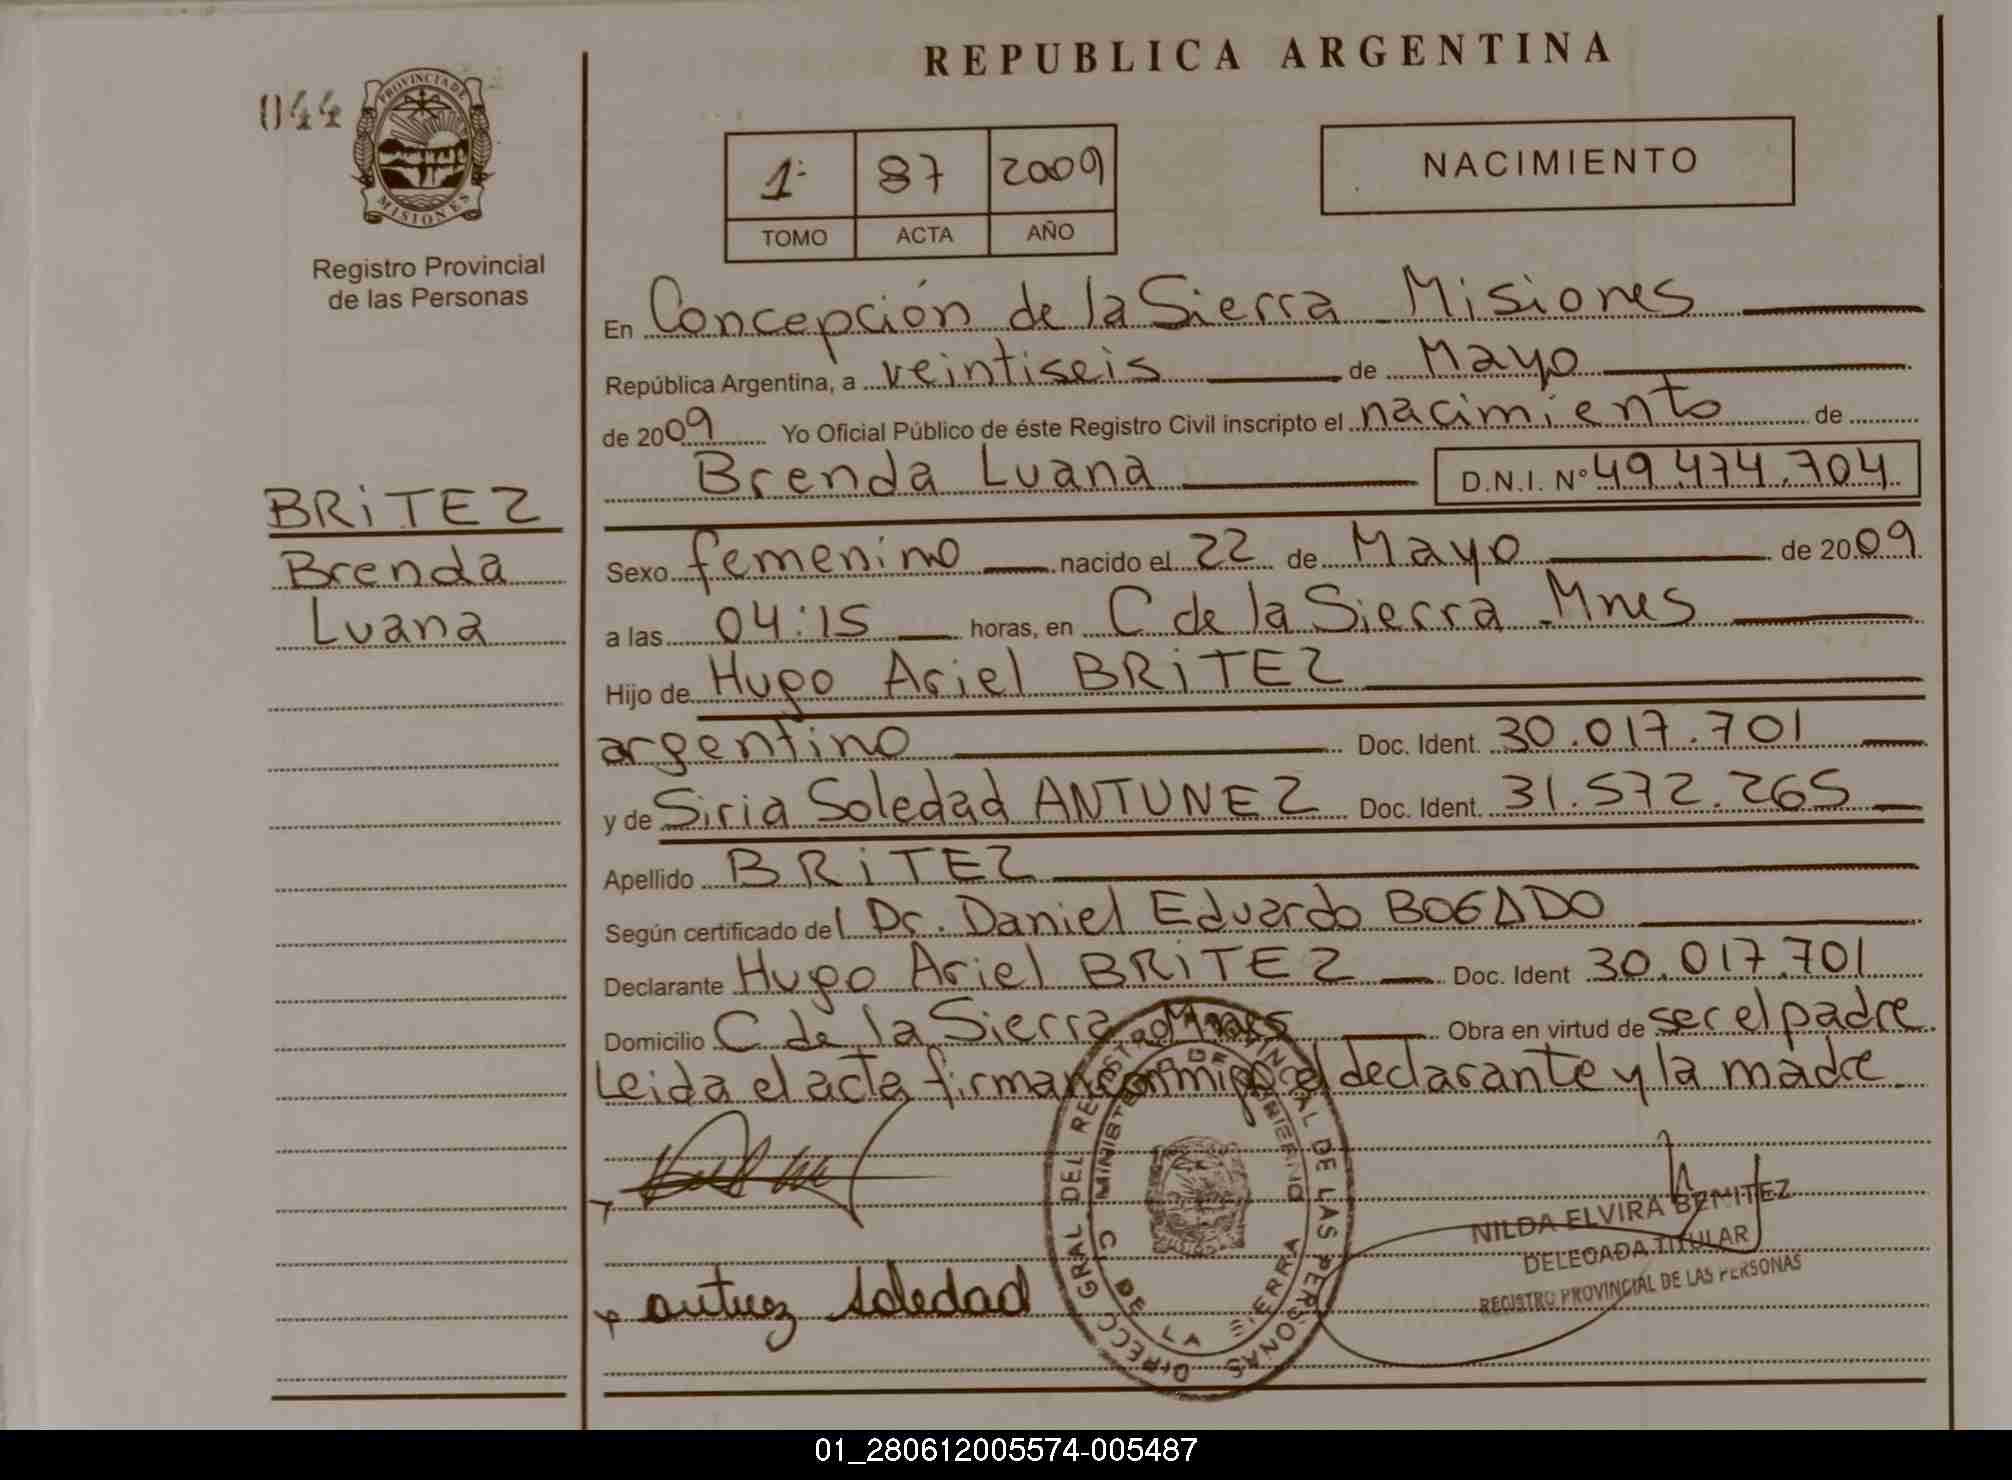 REPUBLICA ARGENTINA
044
PROVINCIA DE MISIONES
Registro Provincial
de las Personas
1ª 87 2009
TOMO ACTA AÑO
NACIMIENTO
En Concepción de la Sierra - Misiones
República Argentina, a veintiseis de Mayo
de 2009 Yo Oficial Público de éste Registro Civil inscripto el nacimiento de
Brenda Luana D.N.I. Nº 49.474.704
BRiTEZ
Brenda
Luana
Sexo femenino nacido el 22 de Mayo de 2009
a las 04:15 horas, en C de la Sierra - Mnes
Hijo de Hugo Ariel BRiTEZ
argentino Doc. Ident. 30.017.701
y de Siria Soledad ANTUNEZ Doc. Ident. 31.572.265
Apellido BRiTEZ
Según certificado del Dr. Daniel Eduardo BOGADO
Declarante Hugo Ariel BRiTEZ Doc. Ident 30.017.701
Domicilio C de la Sierra Mnes Obra en virtud de ser el padre
Leida el acta firman conmigo el declarante y la madre
DIRECC GRAL DEL REGISTRO PROVINCIAL DE LAS PERSONAS
MINISTERIO DE GOBIERNO
C DE LA SIERRA
NILDA ELVIRA BENITEZ
DELEGADA TITULAR
REGISTRO PROVINCIAL DE LAS PERSONAS
Soledad
01_280612005574-005487